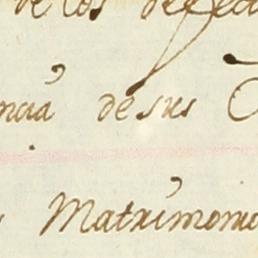 de los defec
ncia de sus
Matrimonio